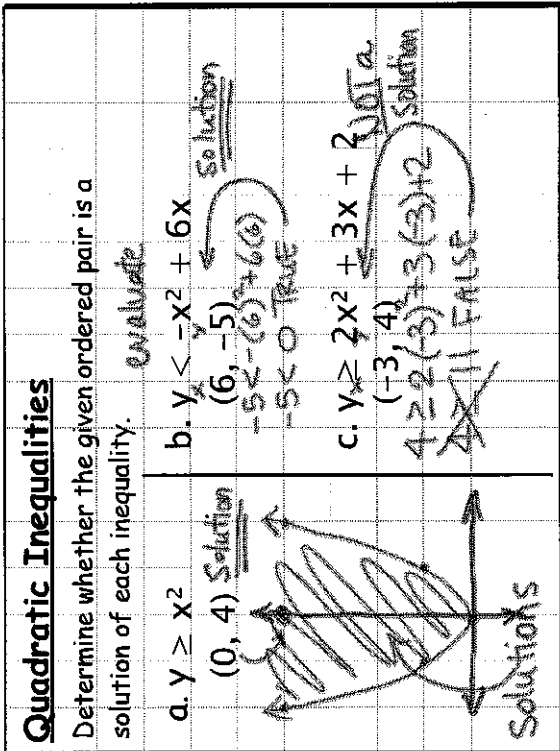 Quadratic Inequalities
Determine whether the given ordered pair is a
solution of each inequality.
evaluate
a. y ≥ x²
(0, 4) Solution
Solutions
b. y < -x² + 6x
x y
(6, -5) Solution
-5 < -(6)² + 6(6)
-5 < 0 TRUE
c. y ≥ 2x² + 3x + 2
x y
(-3, 4) NOT a
Solution
4 ≥ 2(-3)² + 3(-3) + 2
4 ≥ 11 FALSE